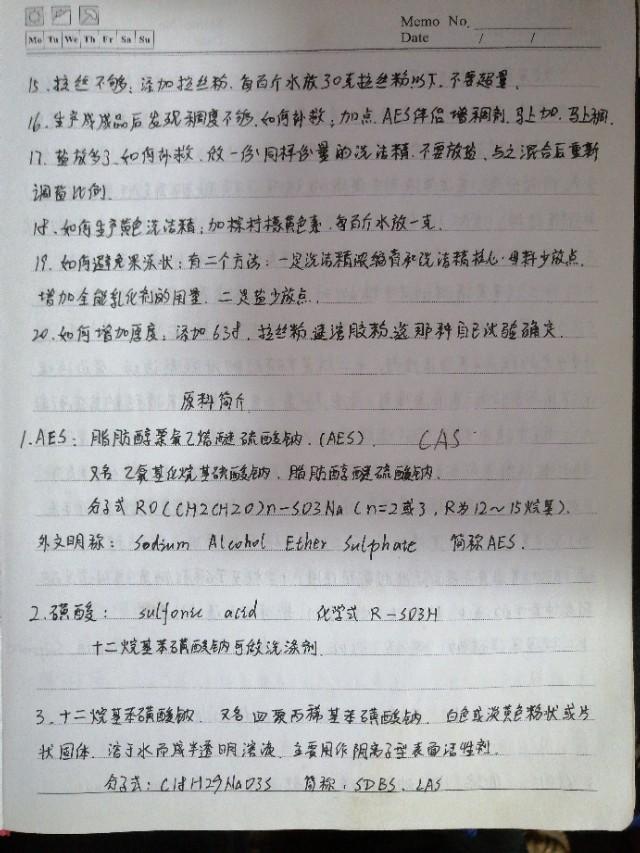 Memo No.
Mo Tu We Th Fr Sa Su
Date / /
15、拉丝不够：添加拉丝粉，每百斤水放30克拉丝粉以下，不要超量。
16、生产成成品后发现稠度不够，如何补救：加点AES伴侣增稠剂，马上加，马上稠。
17、盐放多了，如何补救，做一份同样份量的洗洁精，不要放盐，与之混合后重新
调整比例。
18、如何生产黄色洗洁精：加柠檬黄色素，每百斤水放一克。
19、如何避免果冻状：有二个方法：一是洗洁精浓缩膏和洗洁精核心母料少放点，
增加全能乳化剂的用量，二是盐少放点。
20、如何增加厚度：添加638，拉丝粉，速溶胶粉，选那种自己试验确定。
原料简介
1、AES：脂肪醇聚氧乙烯醚硫酸钠，(AES)、 CAS
又名 乙氧基化烷基硫酸钠、脂肪醇醚硫酸钠.
分子式 RO(CH2CH2O)n-SO3Na（n=2或3，R为12～15烷基）.
外文明称： Sodium Alcohol Ether Sulphate 简称AES.
2、磺酸： sulfonic acid 化学式 R-SO3H
十二烷基苯磺酸钠可做洗涤剂.
3、十二烷基苯磺酸钠，又名四聚丙稀基苯磺酸钠，白色或淡黄色粉状或片
状固体，溶于水而成半透明溶液，主要用作阴离子型表面活性剂.
分子式：C18H29NaO3S 简称：SDBS、LAS